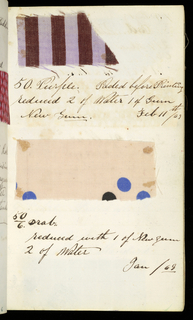 50. Purple. Padded before Printing
reduced 2 of Water 1 of Gum
New Gum. Feb 11/69
50
6 Drab
reduced with 1 of New gum
2 of Water
Jan /69